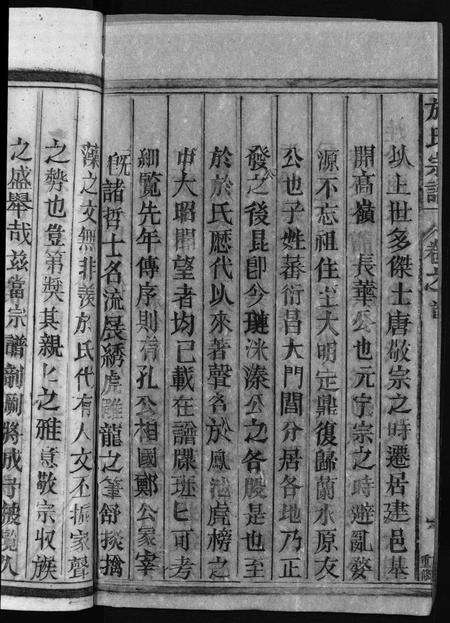 於氏宗譜 卷之首
以上世多傑士唐敬宗之時遷居建邑基
開高嶺 長華公也元寧宗之時避亂婺
源不忘祖住 大明定鼎復歸蘭水原友
公也子姓蕃衍昌大門閭分居各地乃正
發公之後昆卽今璉洣溱公之各股是也至
於於氏歷代以來著聲名於鳳池虎榜之
中大昭聞望者均已載在譜牒班匕可考
細覽先年傳序則有孔公相國鄭公冢宰
旣諸哲士名流展綉虎雕龍之筆舒掞摛
藻之文無非羨於氏代有人文丕振家聲
之勢也豈第獎其親匕之雅意敬宗收族
之盛舉哉茲當宗譜剞劂將成
重修